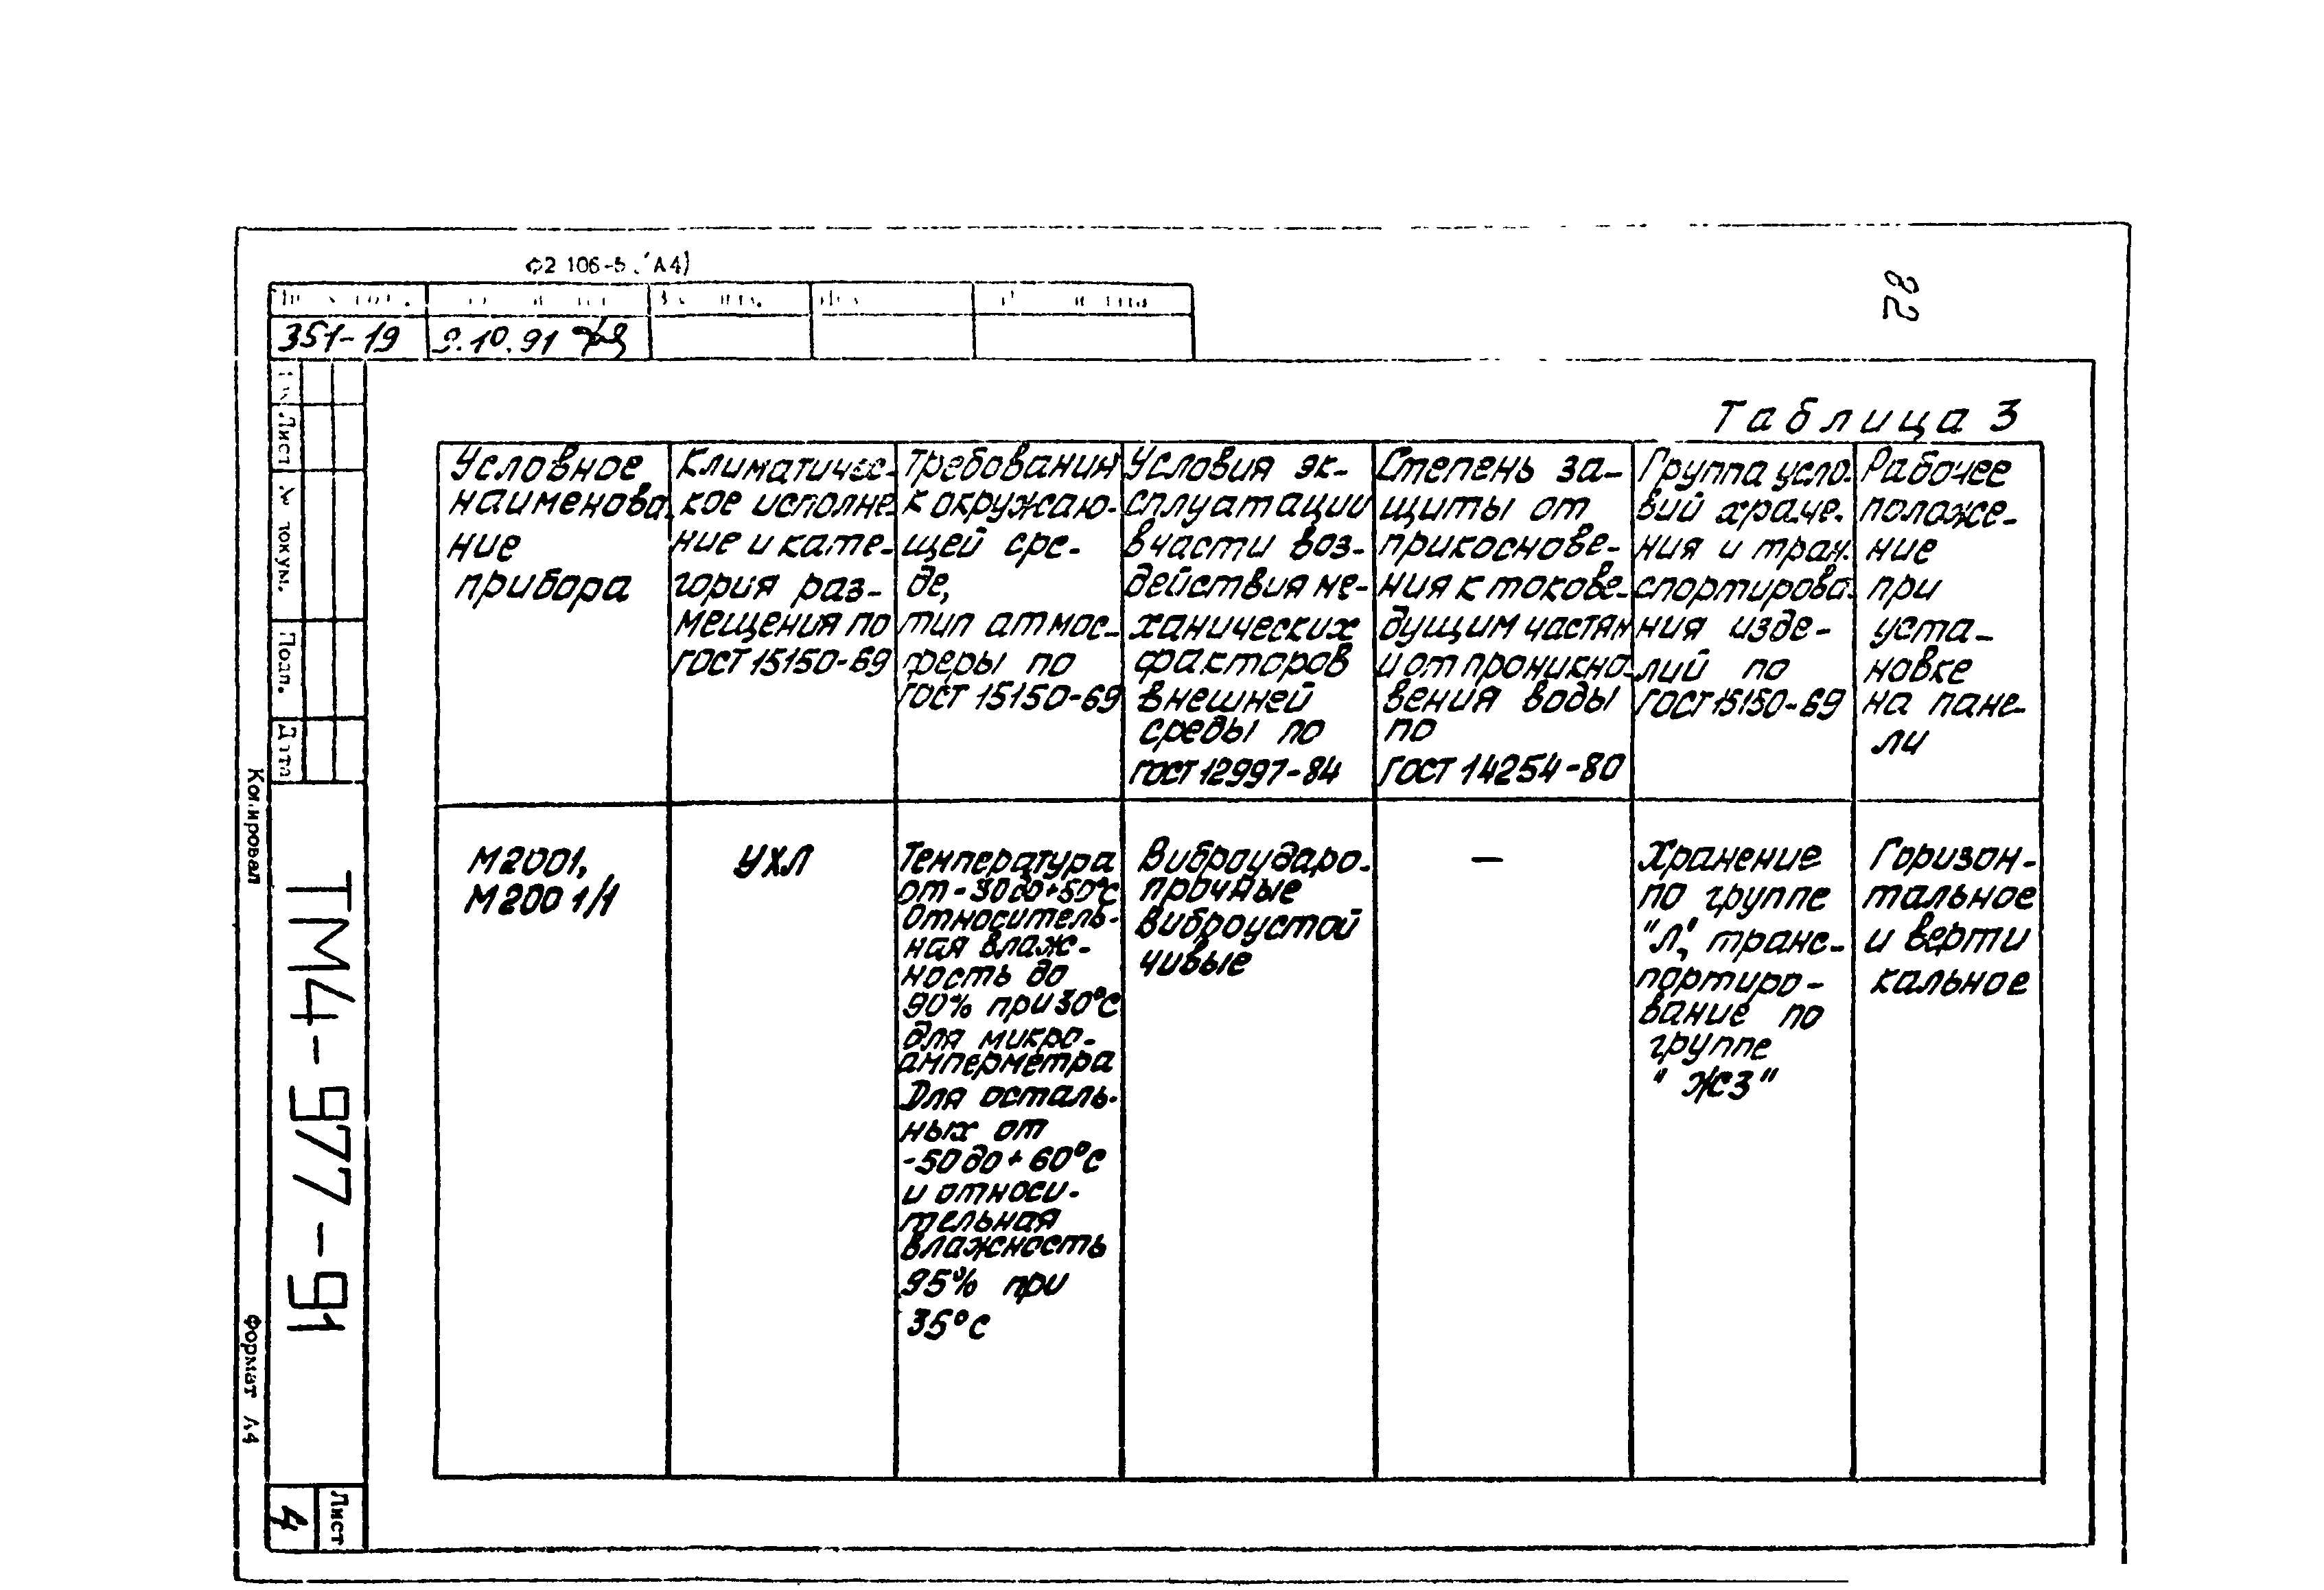 ф2 106-5 (А4)
82
351-19
9.10.91
Таблица 3
Условное
наименова
ние
прибора
Климатичес-
кое исполне-
ние и кате-
гория раз-
мещения по
ГОСТ 15150-69
Требования
к окружаю-
щей сре-
де,
тип атмос-
феры по
ГОСТ 15150-69
Условия эк-
сплуатации
в части воз-
действия ме-
ханических
факторов
внешней
среды по
ГОСТ 12997-84
Степень за-
щиты от
прикоснове-
ния к токове-
дущим частям
и от проникно-
вения воды
по
ГОСТ 14254-80
Группа усло-
вий хране-
ния и тран-
спортирова-
ния изде-
лий по
ГОСТ 15150-69
Рабочее
положе-
ние
при
уста-
новке
на пане-
ли
М2001,
М2001/1
УХЛ
Температура
от -30 до +50°С
Относитель-
ная влаж-
ность до
90% при 30°С
для микро-
амперметра
Для осталь-
ных от
-50 до + 60°С
и относи-
тельная
влажность
95% при
35°С
Виброударо-
прочные
Виброустой
чивые
—
Хранение
по группе
"Л", транс-
портиро-
вание по
группе
"Ж3"
Горизон-
тальное
и верти
кальное
Лист
№ докум.
Подп.
Дата
ТМ4-977-91
Лист
4
Копировал
Формат А4